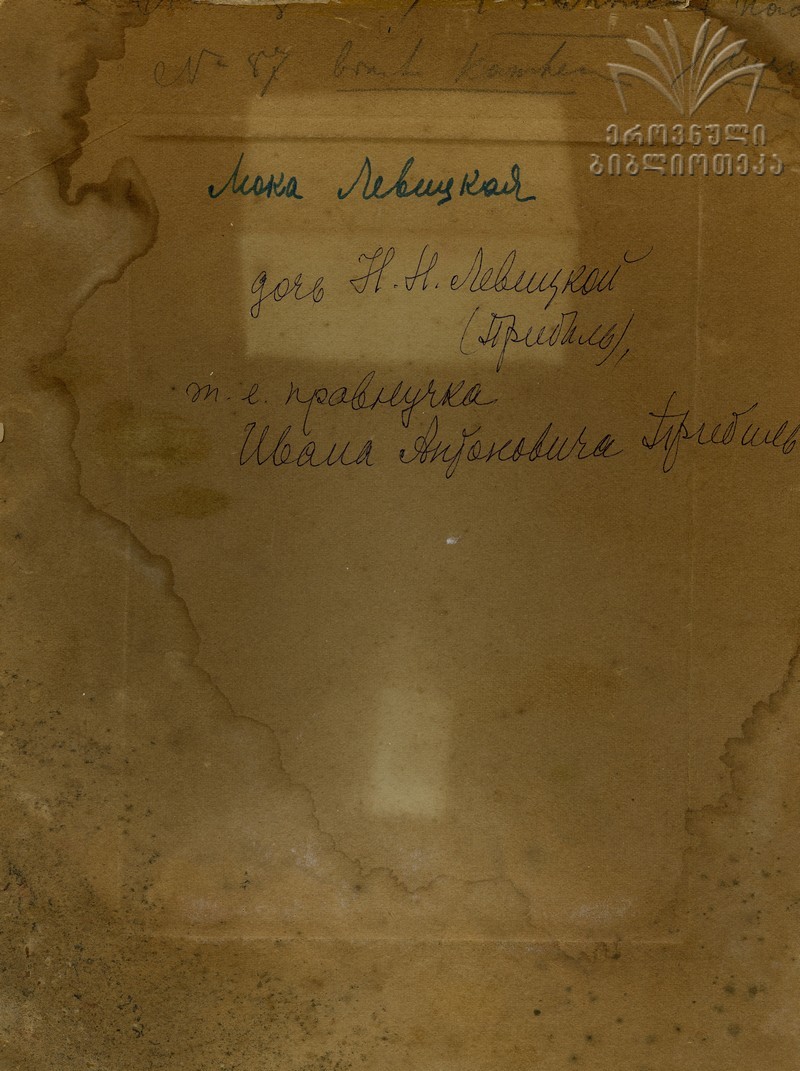 № 87
ეროვნული
ბიბლიოთეკა
Мока Левицкая
дочь Н. Н. Левицкой
(Прибиль),
т. е. правнучка
Ивана Антоновича Прибиль